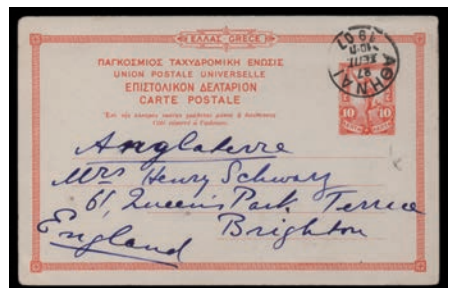 ΕΛΛΑΣ GRECE
ΠΑΓΚΟΣΜΙΟΣ ΤΑΧΥΔΡΟΜΙΚΗ ΕΝΩΣΙΣ
UNION POSTALE UNIVERSELLE
ΕΠΙΣΤΟΛΙΚΟΝ ΔΕΛΤΑΡΙΟΝ
CARTE POSTALE
ΑΘΗΝΑΙ
27
ΣΕΠΤ
1907
10 10
Angleterre
Mrs Henry Schwarz
61, Queen's Park Terrace
Brighton
England